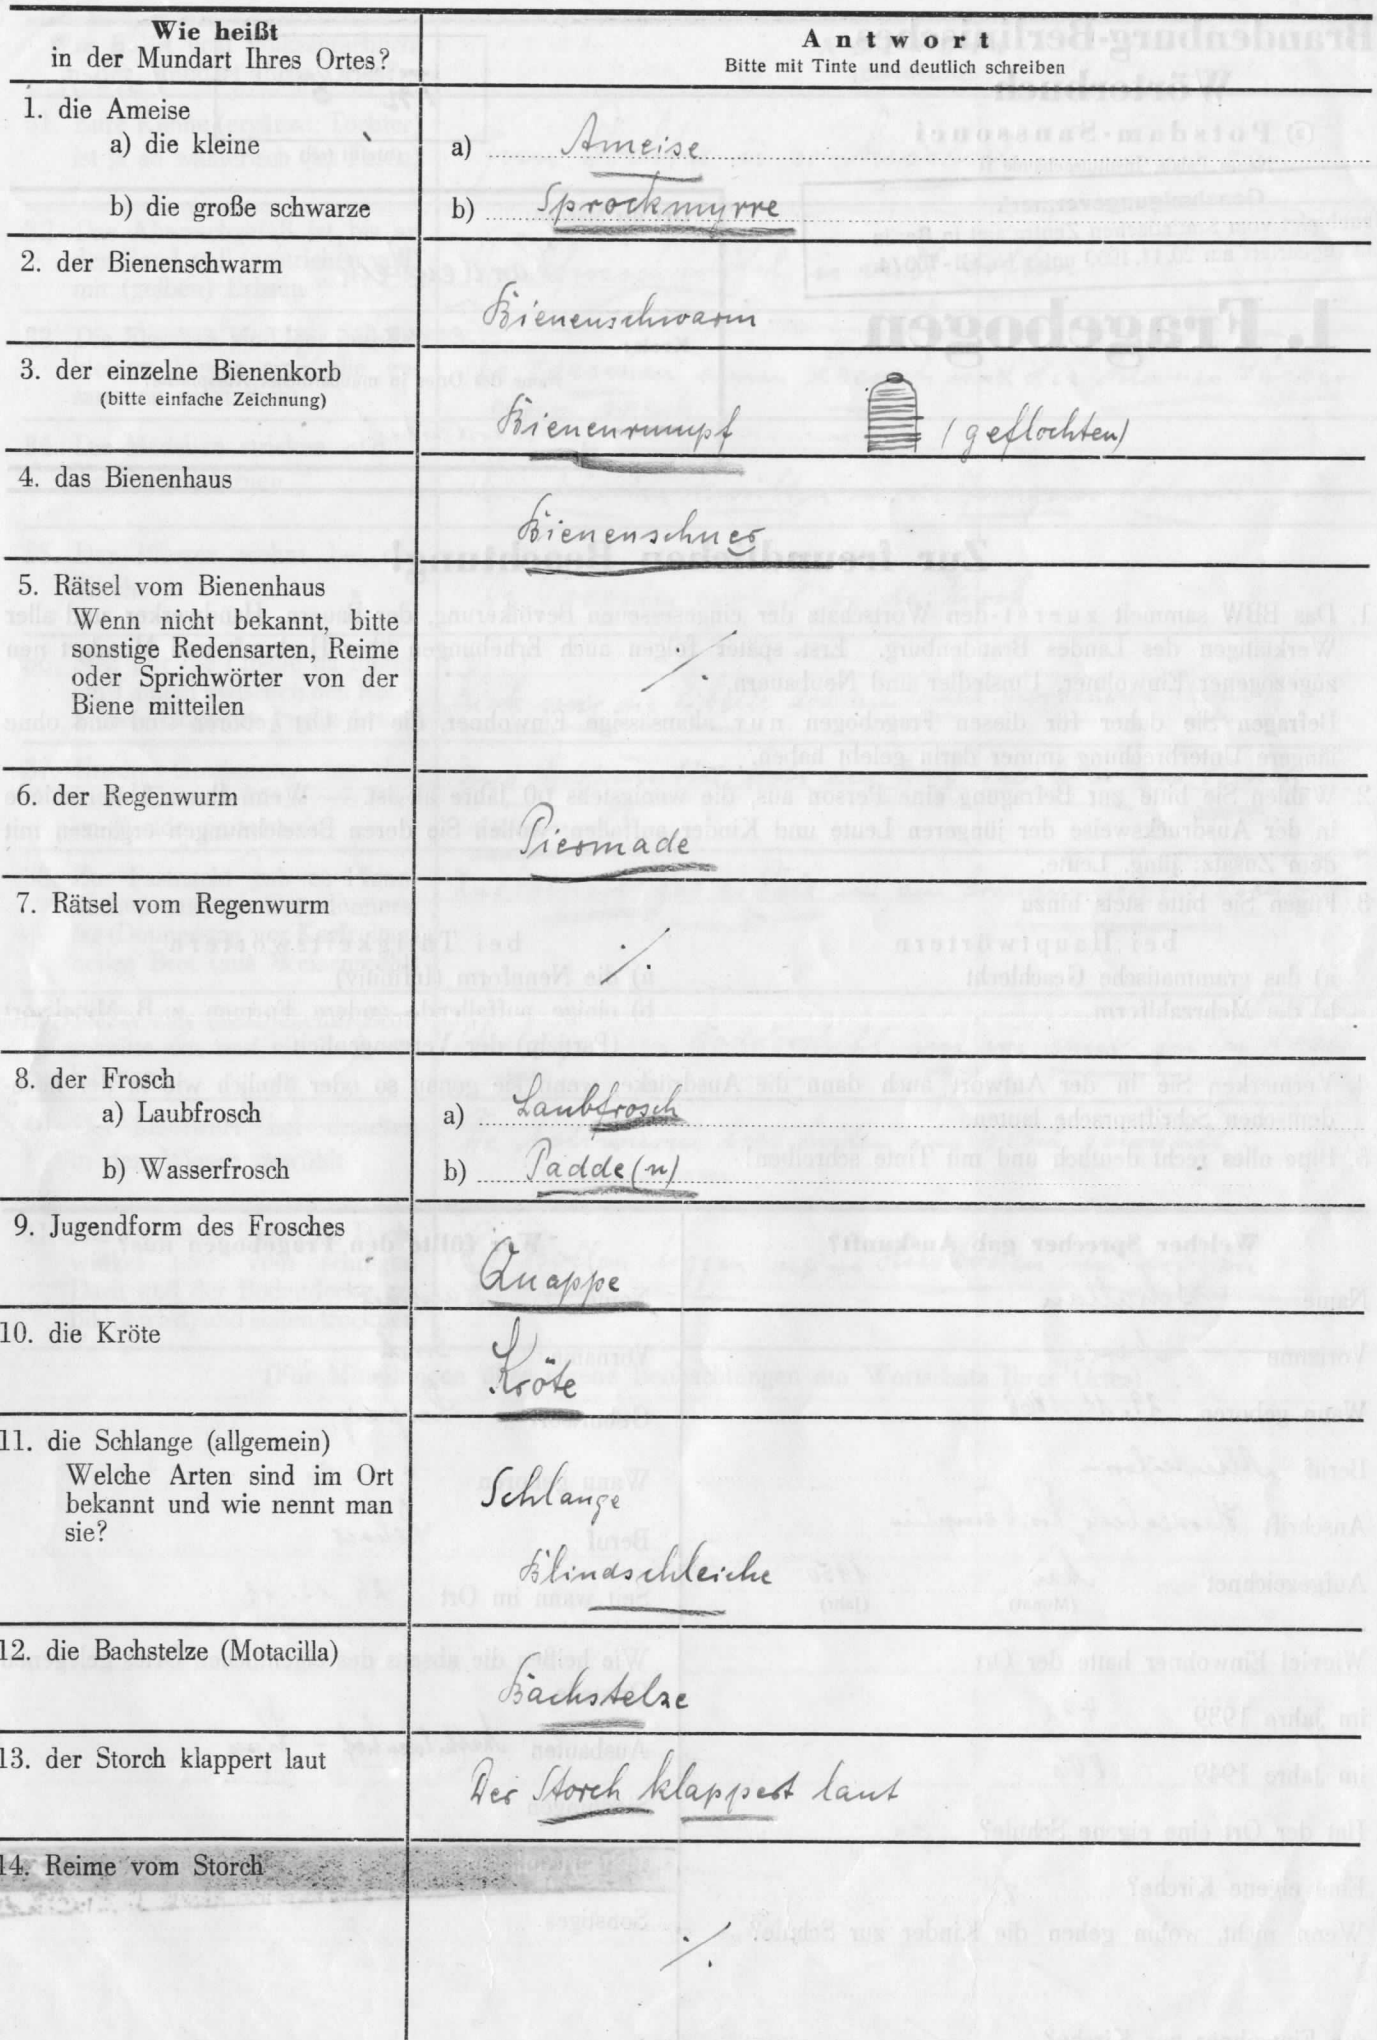 Wie heißt
in der Mundart Ihres Ortes?
Antwort
Bitte mit Tinte und deutlich schreiben
1. die Ameise
a) die kleine
a) Ameise
b) die große schwarze
b) Sprockmyrre
2. der Bienenschwarm
Bienenschwarm
3. der einzelne Bienenkorb
(bitte einfache Zeichnung)
Bienenrumpf (geflochten)
4. das Bienenhaus
Bienenschuer
5. Rätsel vom Bienenhaus
Wenn nicht bekannt, bitte
sonstige Redensarten, Reime
oder Sprichwörter von der
Biene mitteilen
./.
6. der Regenwurm
Piermade
7. Rätsel vom Regenwurm
./.
8. der Frosch
a) Laubfrosch
a) Laubfrosch
b) Wasserfrosch
b) Padde(n)
9. Jugendform des Frosches
Quappe
10. die Kröte
Kröte
11. die Schlange (allgemein)
Welche Arten sind im Ort
bekannt und wie nennt man
sie?
Schlange
Blindschleiche
12. die Bachstelze (Motacilla)
Bachstelze
13. der Storch klappert laut
Der Storch klappert laut
14. Reime vom Storch
./.